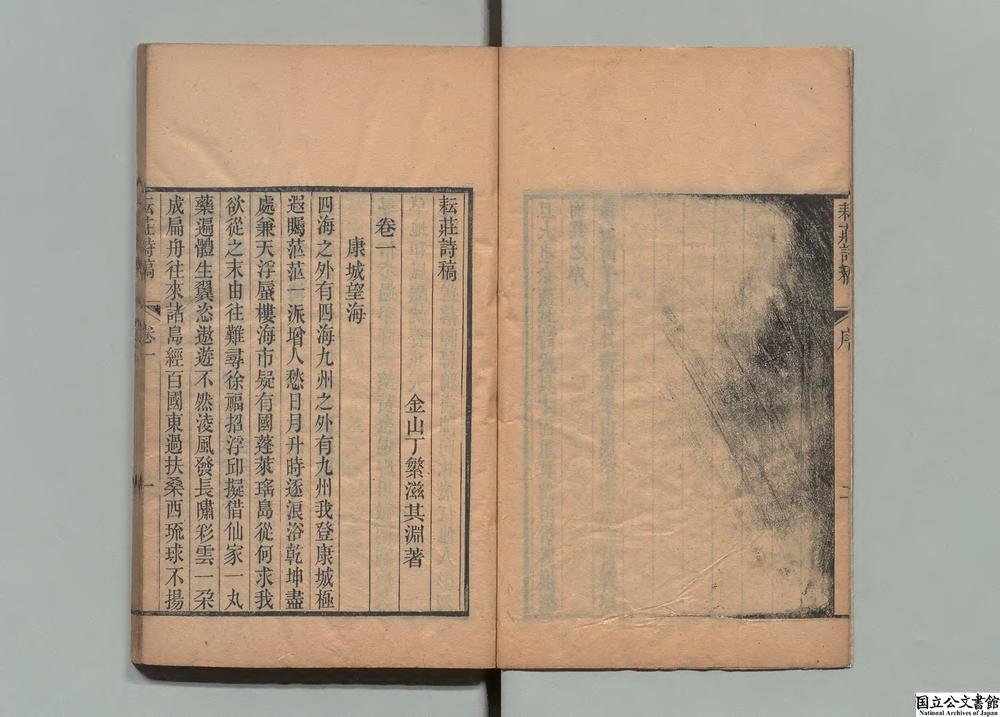 耘莊詩稿
序
耘莊詩稿
金山丁繁滋其淵著
卷一
康城望海
四海之外有四海九州之外有九州我登康城極
遐矚茫茫一派增人愁日月升時逐浪浴乾坤盡
處兼天浮蜃樓海市疑有國蓬萊瑤島從何求我
欲從之末由往難尋徐福招浮邱擬借仙家一丸
藥遍體生翼恣遨遊不然凌風發長嘯彩雲一朶
成扁舟往來諸島經百國東過扶桑西琉球不揚
耘莊詩稿
卷一
一
国立公文書館
National Archives of Japan